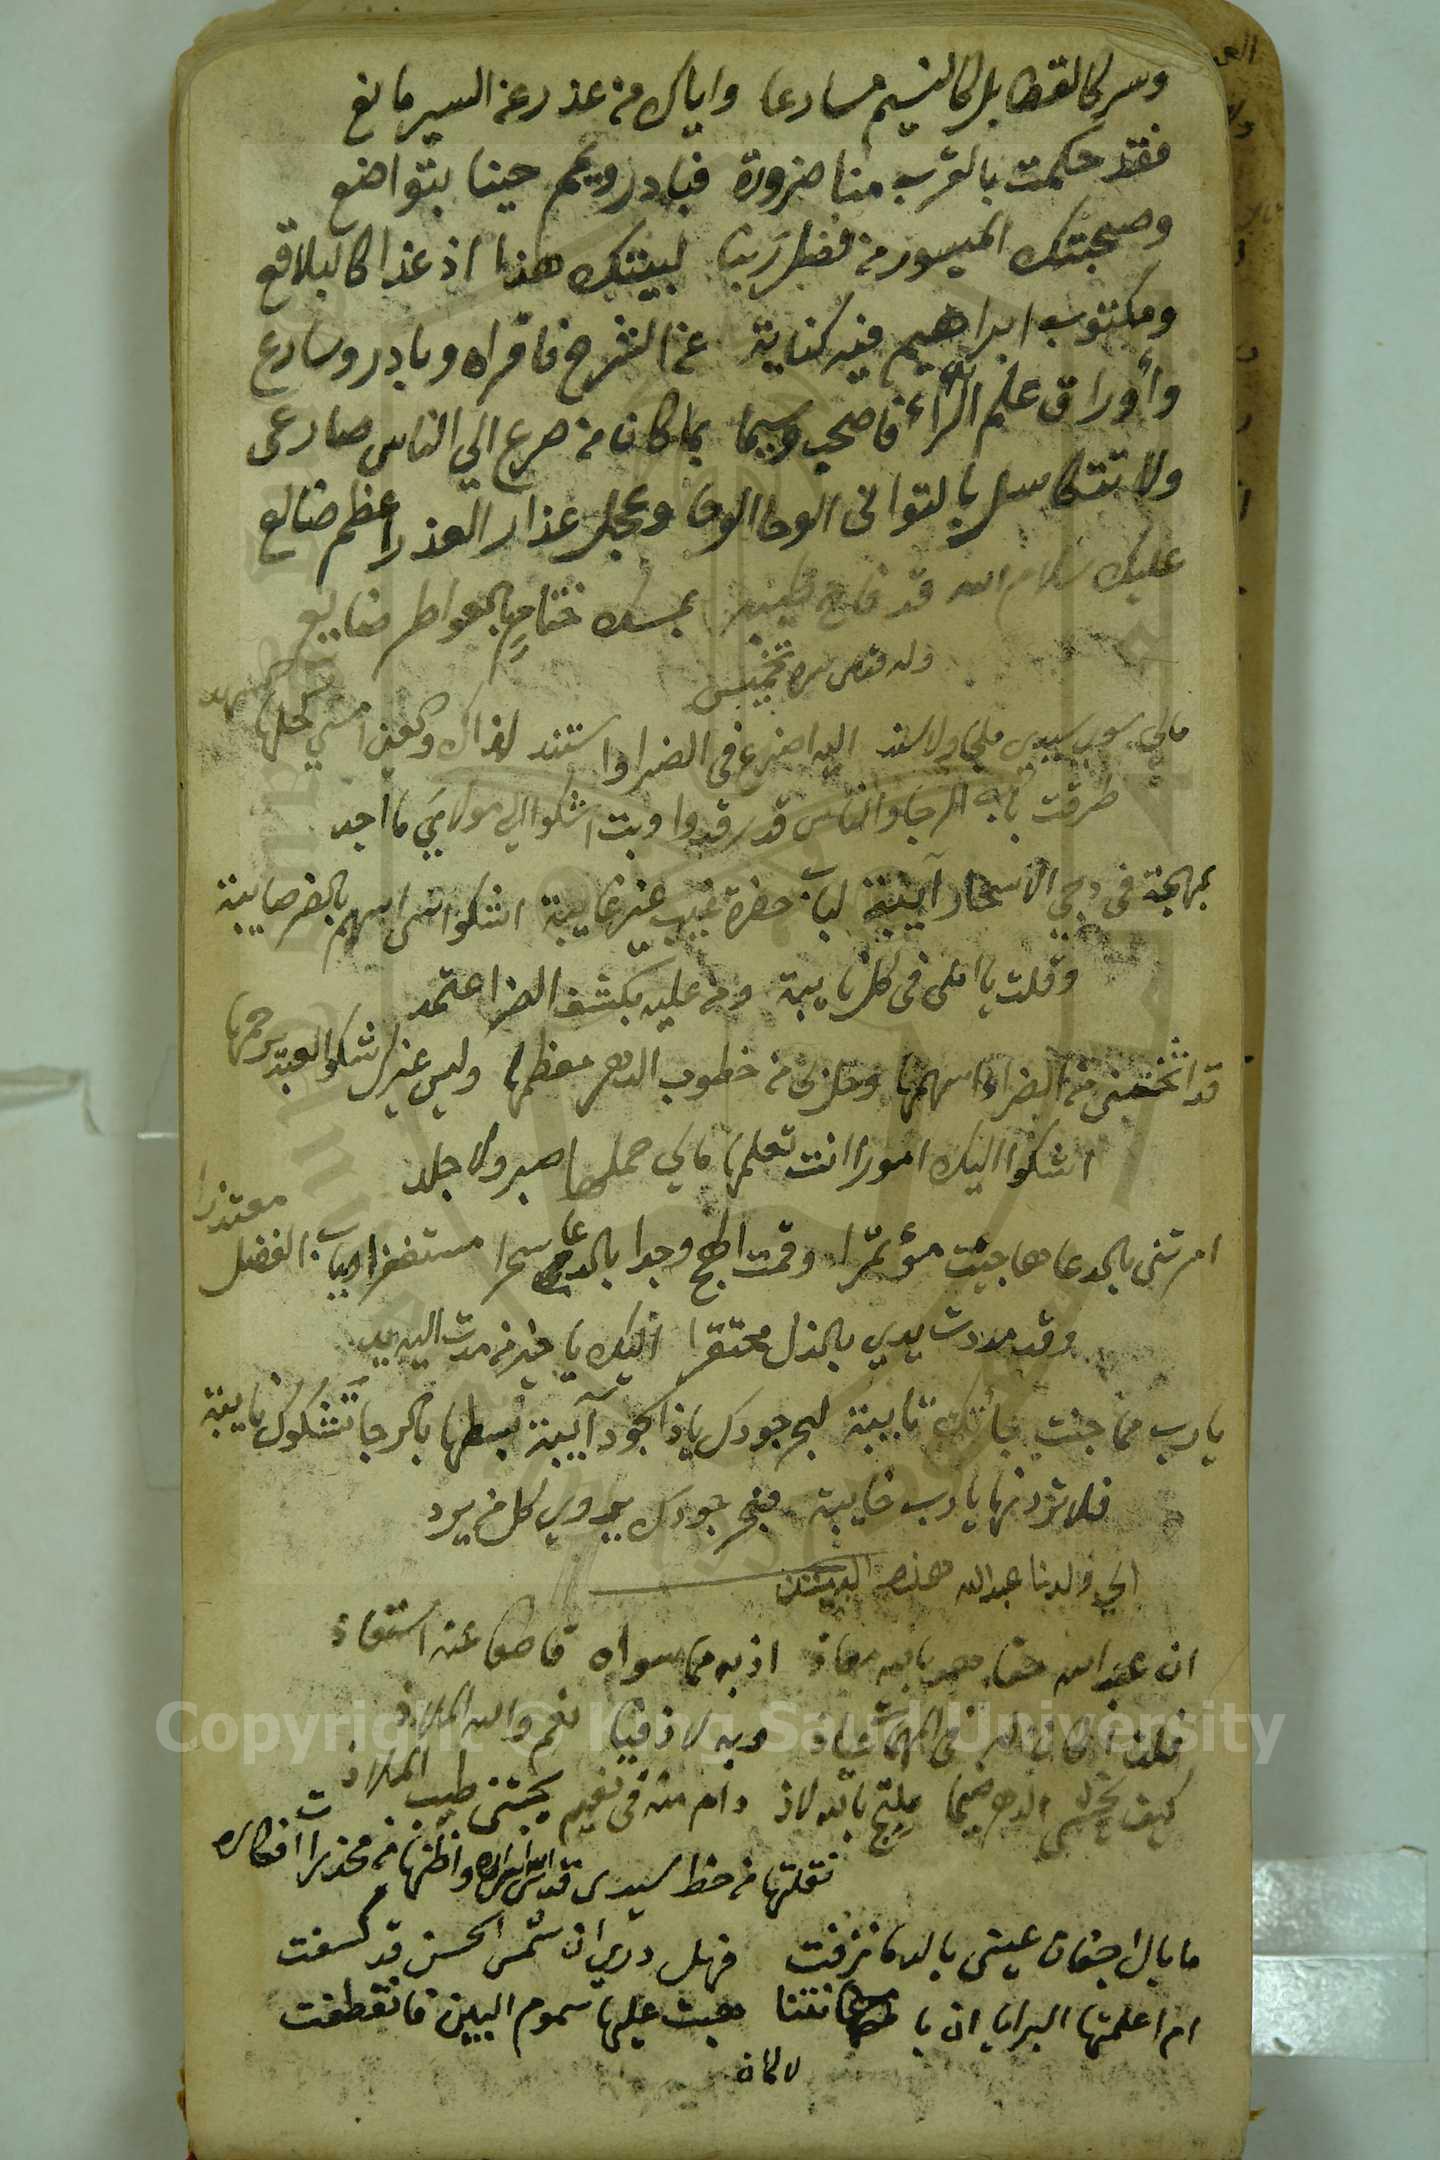 وسر كالقطا بل كالنسيم مسارعا واياك من عذر عن السير مانع
فقد حكمت بالقرب منا ضرورة فبادر ويمم حينا بتواضع
وصحبتك الميسور من فضل ربنا لبيتك هذا اذ غدا كالبلاقع
ومكتوب ابراهيم فيه كناية عن الشرح فاقراه وبادر وسارع
وأوراق علم الراء فاصحب وسيما بما كان من صرع الي الناس صارعى
ولا تتكاسل بالتوانى الوحا الوحا وعجل عذار العذر اعظم ضائع
عليك سلام الله قد فاح طيبه بمسك ختام بالعواطر ضايع
وله قدس سره تخميس
مالي سوى سيدي ملجا ولا سند اليه اضرع فى الضرا واستند لذاك والعين امسي كحلها سهد
طرقت باب الرجا والناس قد رقدوا وبت اشكوا الي مولاي ما اجد
بمهجة في دجي الاسحار آيبة لباب حضرة غيب غير غايبة اشكوا اسى اسهم بالضر صايبة
وقلت يا املى فى كل نايبة ومن عليه بكشف الضر اعتمد
قد اثخنتنى من الضراء اسهمها وحل بى من خطوب الدهر معظمها وليس غيرك شكوا العبد يرحمها
اشكوا اليك امورا انت تعلمها مالي على حملها صبر ولا جلد
امرتنى بالدعا ها جئت مؤتمرا وقمت الهج وجدا بالدعا سحرا مستغفرا بباب الفضل معتذرا
وقد مددت يدي بالذل محتقرا اليك يا خير من مدت اليه يد
يارب مما جنت جاءتك تايبة لبحر جودك ياذا الجود آيبة بسطها بالرجا تشكوك نايبة
فلا تردنها يارب خايبة فبحر جودك يروي كل من يرد
الي ولدنا عبدالله
ان عبد الله حقا هو بالله معاذ اذ به مما سواه قاطعا عنه استعاذ
وبه لاذ فيا نعم والله الملاذ
كيف يخشى الدهر ضيما ملتج بالله لاذ دام منه فى نعيم يجتنى طيب الملاذ
نقلتها من خط سيدى قدس الله اسراره واظنها من مخدرات افكاره
ما بال اجفان عينى بالدما نزفت فهل دري ان شمس الحسن قد كسفت
ام اعلمتها البرايا ان يا نتنا هبت عليها سموم البين فانقطفت